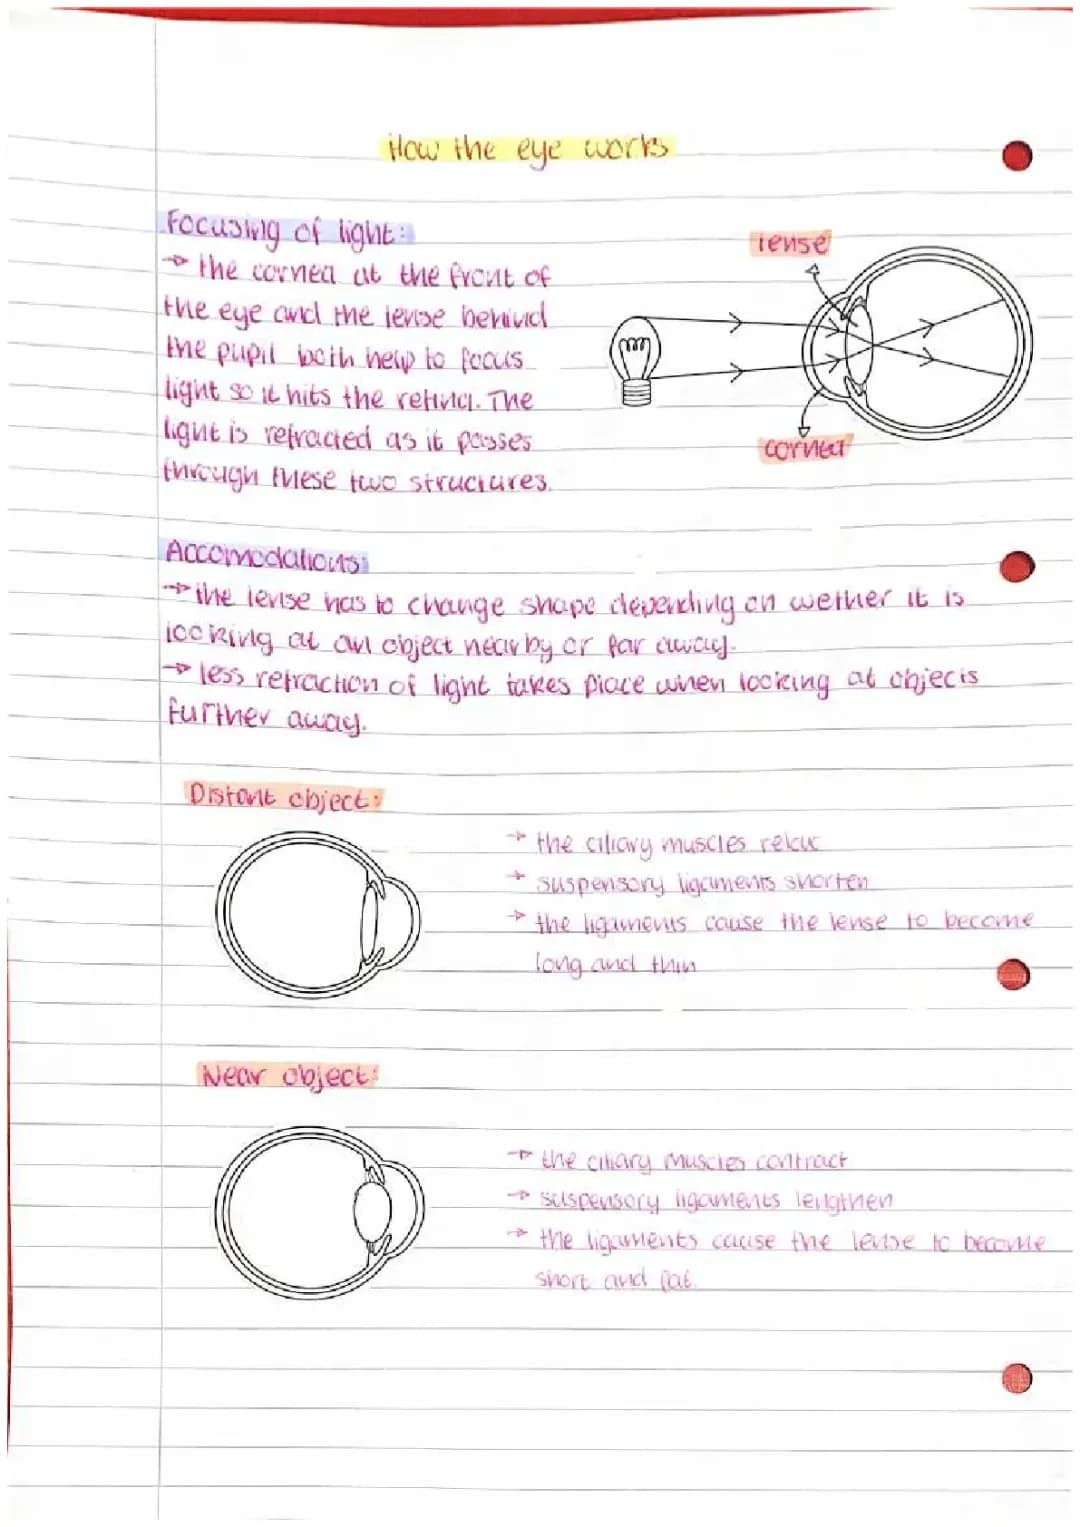 How the eye works
Focusing of light:
→ the cornea at the front of
the eye and the lense behind
the pupil both help to focus
light so it hits the retina. The
light is refracted as it passes
through these two structures.
lense
cornea
Accomodations:
→ the lense has to change shape depending on wether it is
looking at an object nearby or far away.
→ less refraction of light takes place when looking at objects
further away.
Distant object:
→ the ciliary muscles relax
→ suspensory ligaments shorten
→ the ligaments cause the lense to become
long and thin
Near object:
→ the ciliary muscles contract
→ suspensory ligaments lengthen
→ the ligaments cause the lense to become
short and fat.